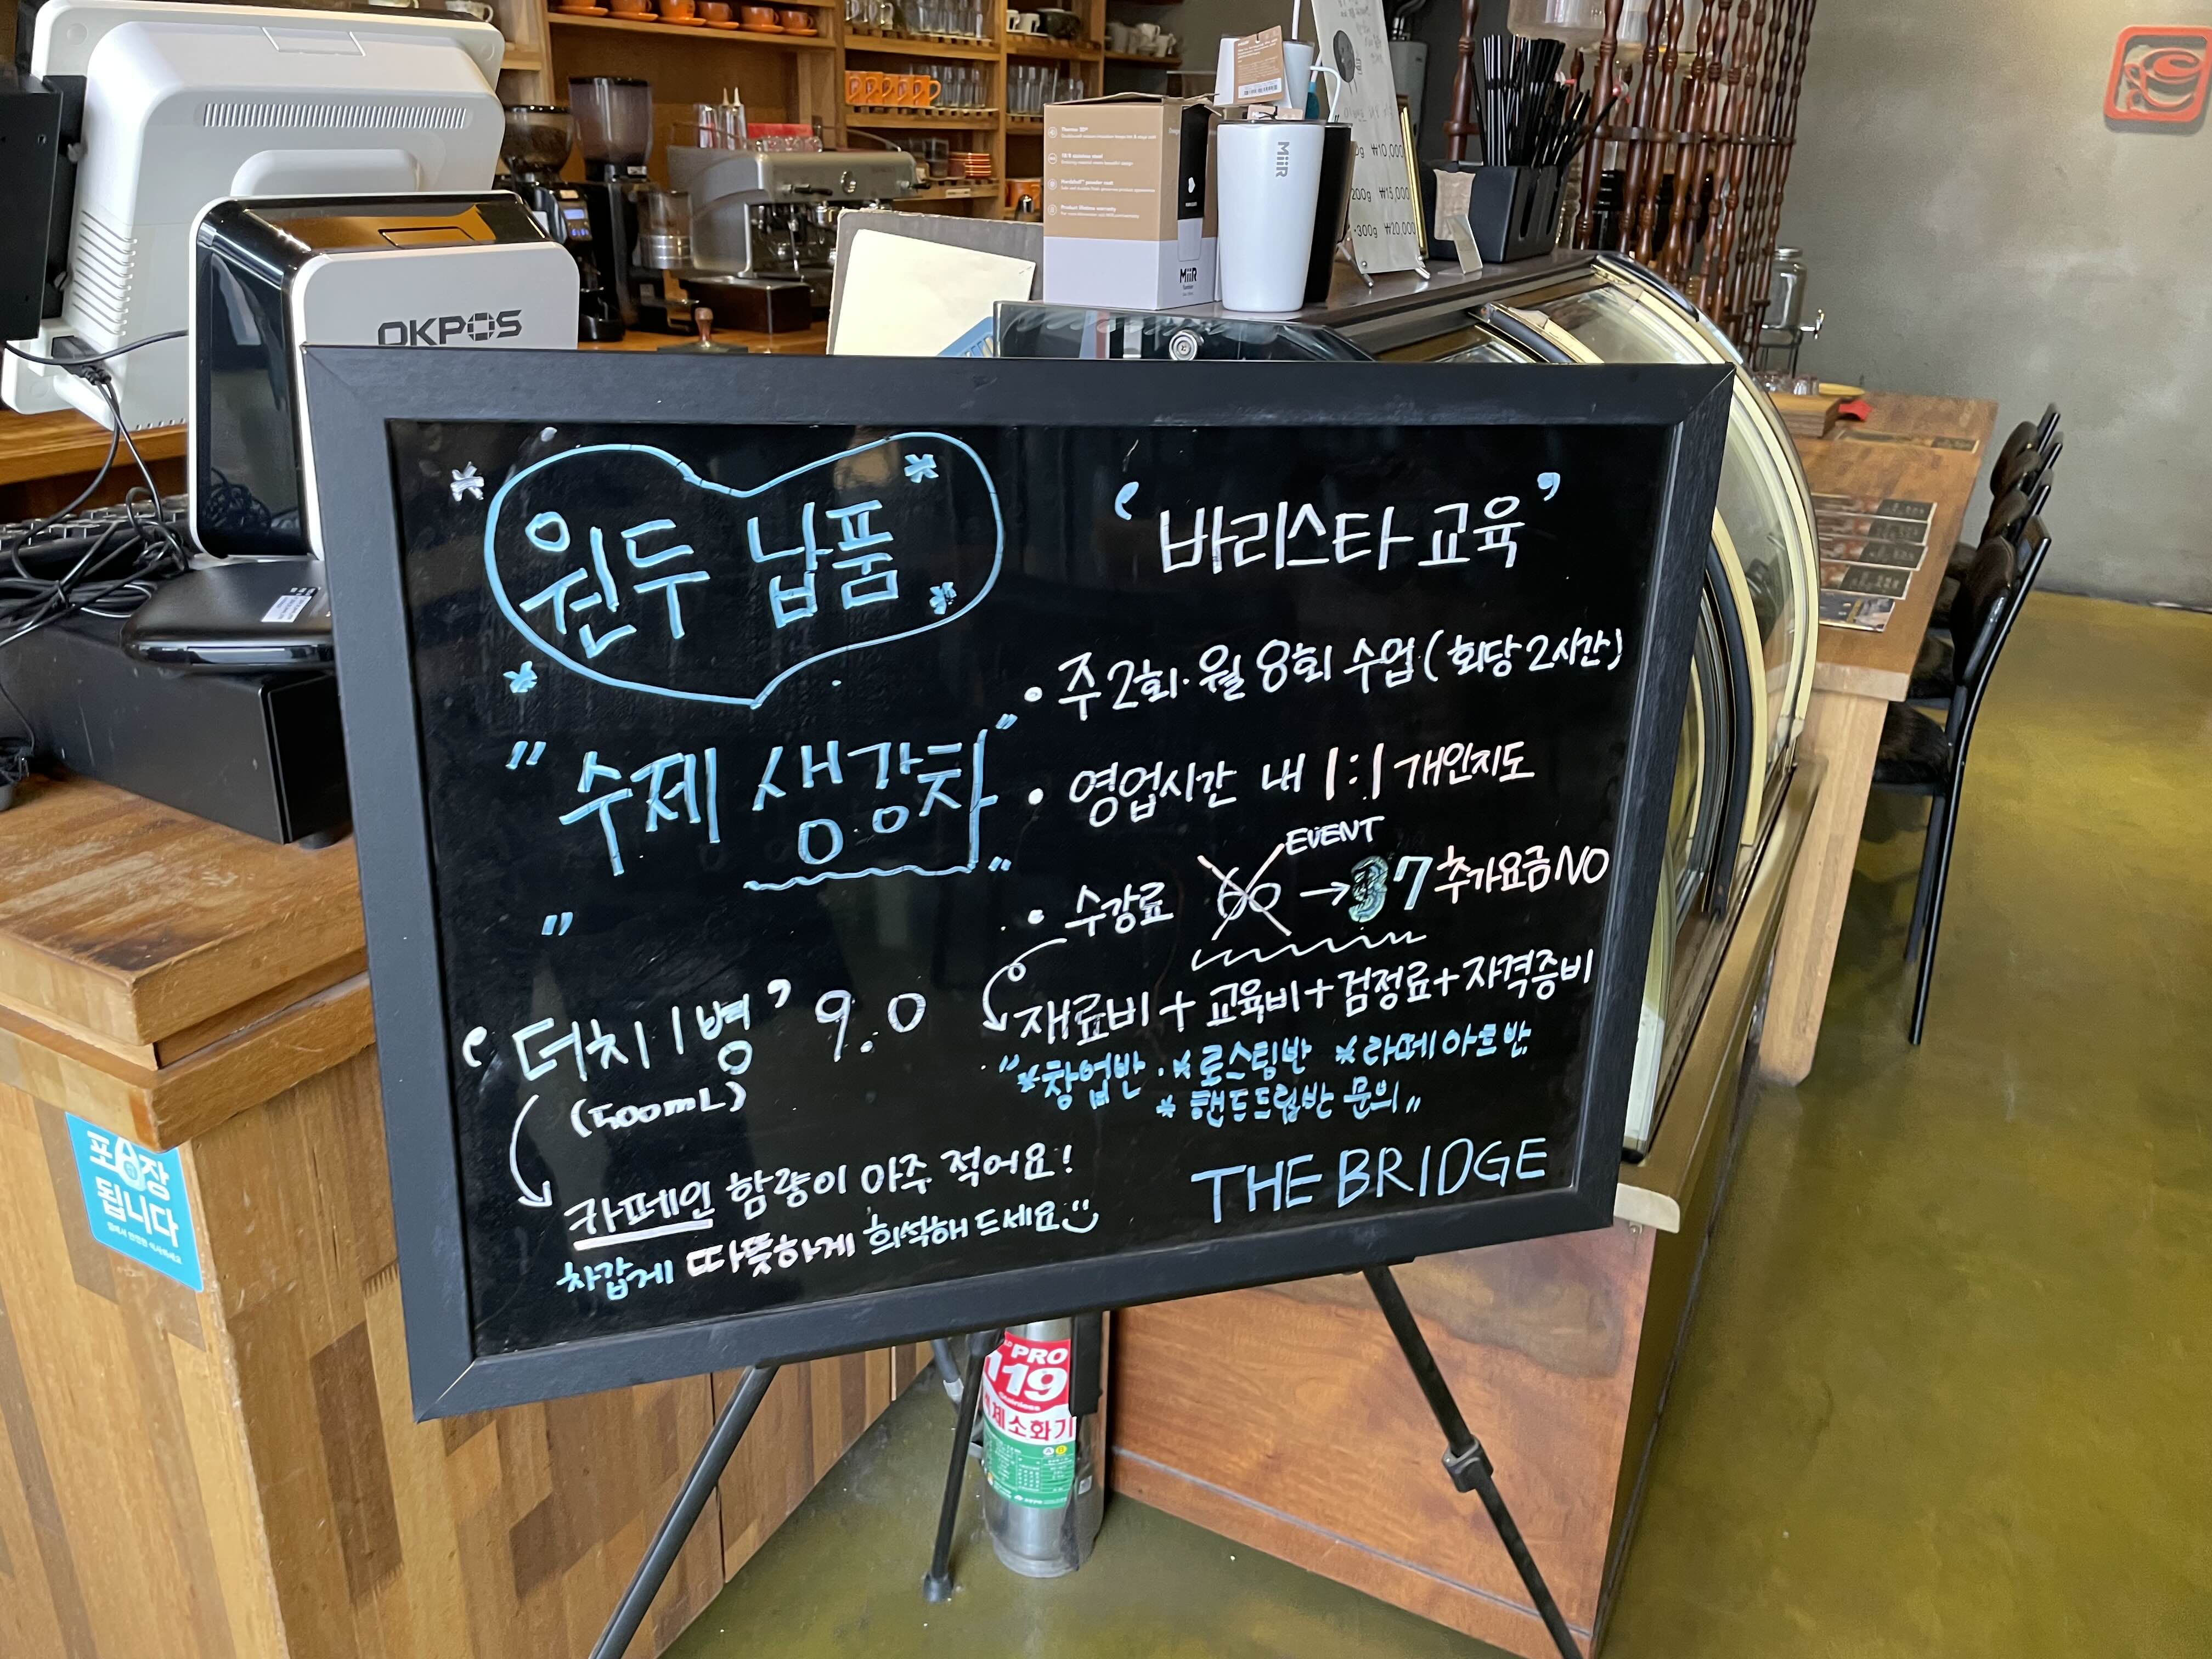 OKPOS
MiiR
MiiR
₩10,000
200g ₩15,000
-300g ₩20,000
원두 납품
" 수제 생강차 "
"
' 더치 1병 ' 9.0
(500mL)
카페인 함량이 아주 적어요!
차갑게 따뜻하게 희석해 드세요
' 바리스타 교육 '
• 주 2회. 월 8회 수업 (회당 2시간)
• 영업시간 내 1:1 개인지도
EVENT
• 수강료 60 → 37 추가요금 NO
재료비 + 교육비 + 검정료 + 자격증비
"*창업반 . *로스팅반 *라떼아트반
*핸드드립반 문의"
THE BRIDGE
포장
됩니다
PRO
119
소화기